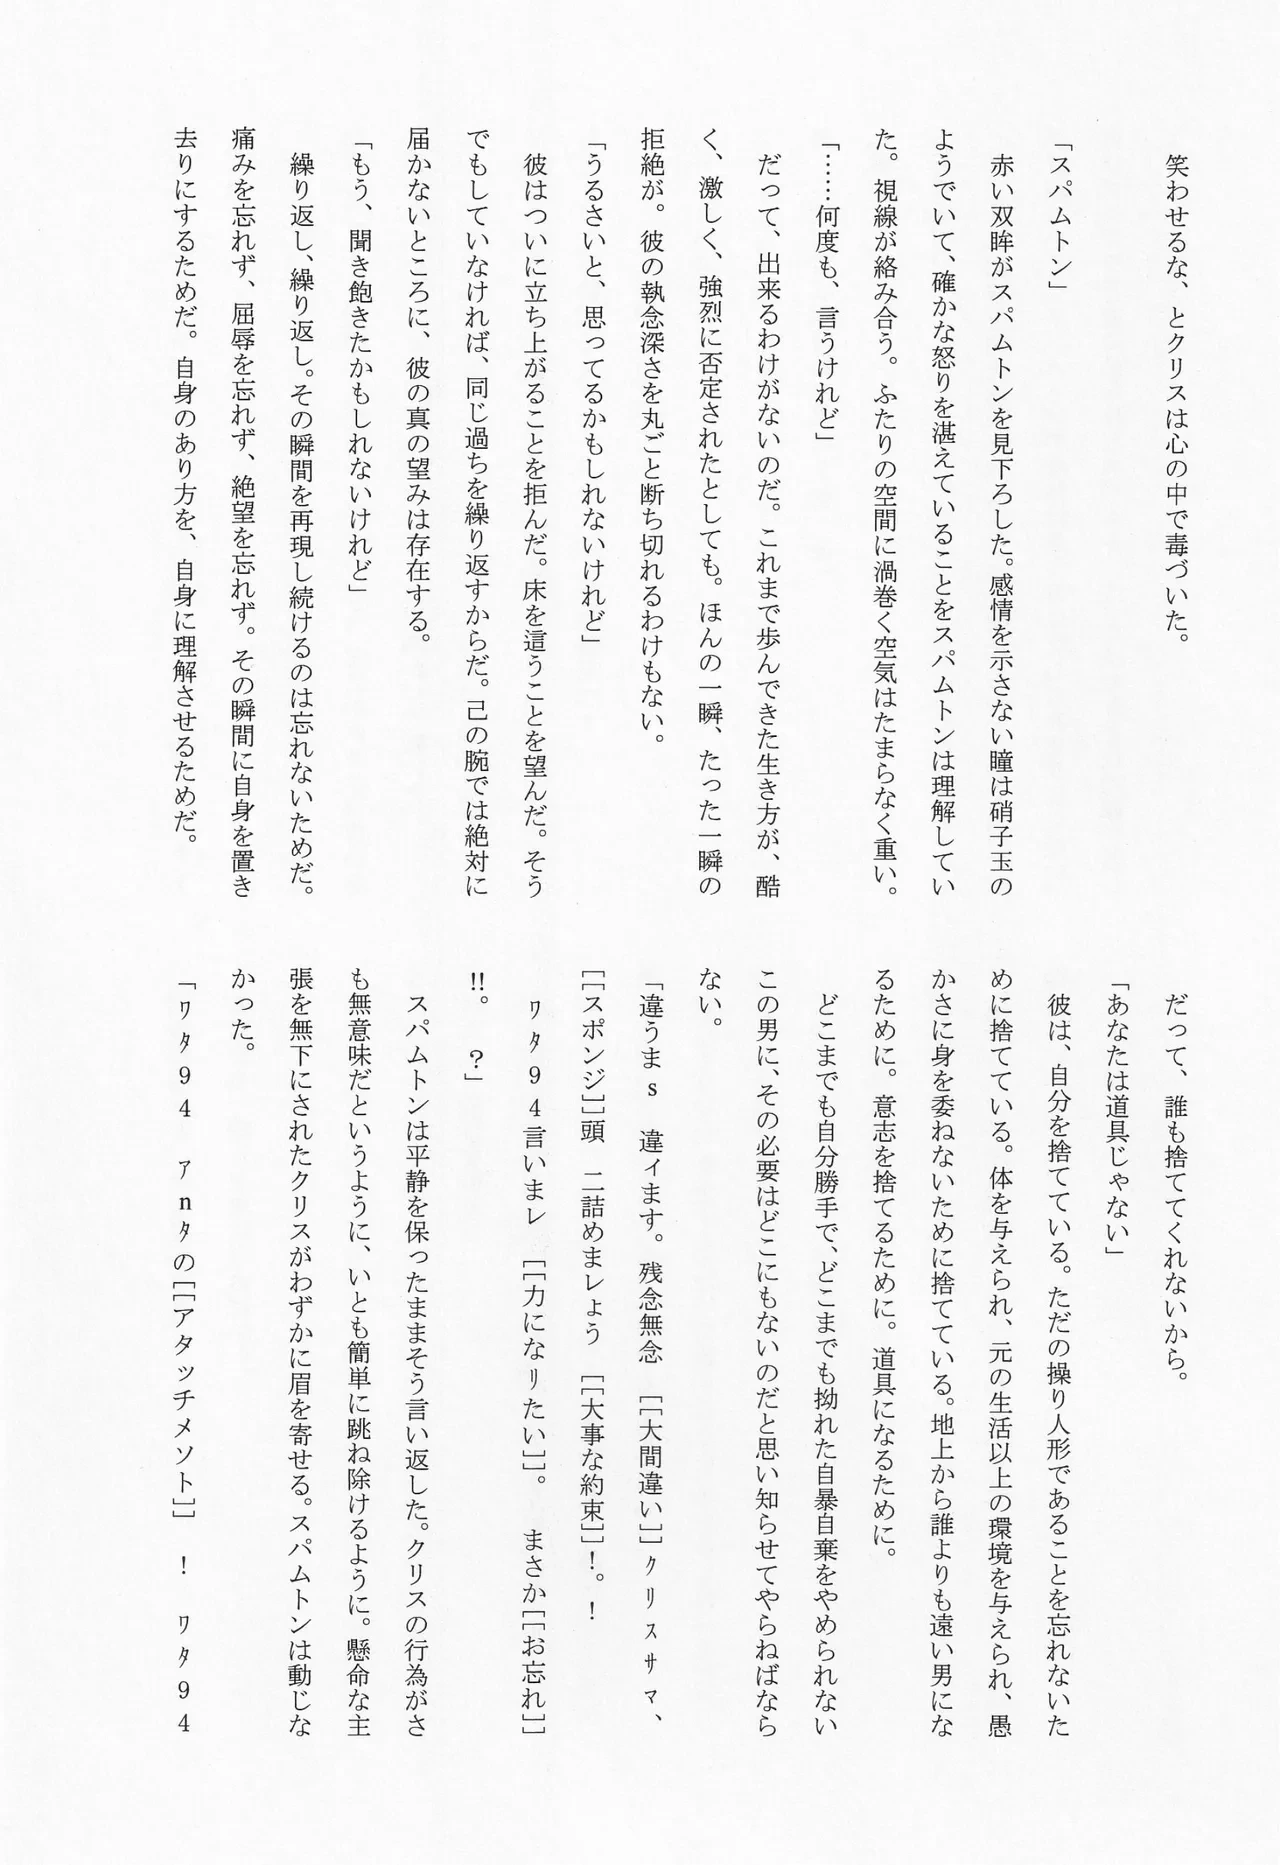 笑わせるな、とクリスは心の中で毒づいた。
「スパムトン」
赤い双眸がスパムトンを見下ろした。感情を示さない瞳は硝子玉の
ようでいて、確かな怒りを湛えていることをスパムトンは理解してい
た。視線が絡み合う。ふたりの空間に渦巻く空気はたまらなく重い。
「……何度も、言うけれど」
だって、出来るわけがないのだ。これまで歩んできた生き方が、酷
く、激しく、強烈に否定されたとしても。ほんの一瞬、たった一瞬の
拒絶が。彼の執念深さを丸ごと断ち切れるわけもない。
「うるさいと、思ってるかもしれないけれど」
彼はついに立ち上がることを拒んだ。床を這うことを望んだ。そう
でもしていなければ、同じ過ちを繰り返すからだ。己の腕では絶対に
届かないところに、彼の真の望みは存在する。
「もう、聞き飽きたかもしれないけれど」
繰り返し、繰り返し。その瞬間を再現し続けるのは忘れないためだ。
痛みを忘れず、屈辱を忘れず、絶望を忘れず。その瞬間に自身を置き
去りにするためだ。自身のあり方を、自身に理解させるためだ。
だって、誰も捨ててくれないから。
「あなたは道具じゃない」
彼は、自分を捨てている。ただの操り人形であることを忘れないた
めに捨てている。体を与えられ、元の生活以上の環境を与えられ、愚
かさに身を委ねないために捨てている。地上から誰よりも遠い男にな
るために。意志を捨てるために。道具になるために。
どこまでも自分勝手で、どこまでも拗れた自暴自棄をやめられない
この男に、その必要はどこにもないのだと思い知らせてやらねばなら
ない。
「違うまs　違ィます。残念無念　[[大間違い]]ｸﾘｽｻﾏ、
[[スポンジ]]頭　二詰めまレょう　[[大事な約束]]！。！
ﾜﾀ94言いまレ　[[力になﾘたい]]。　まさか[[お忘れ]]
!!。　？」
スパムトンは平静を保ったままそう言い返した。クリスの行為がさ
も無意味だというように、いとも簡単に跳ね除けるように。懸命な主
張を無下にされたクリスがわずかに眉を寄せる。スパムトンは動じな
かった。
「ﾜﾀ94　ｱnﾀの[[アタッチメソト]]　！　ﾜﾀ94